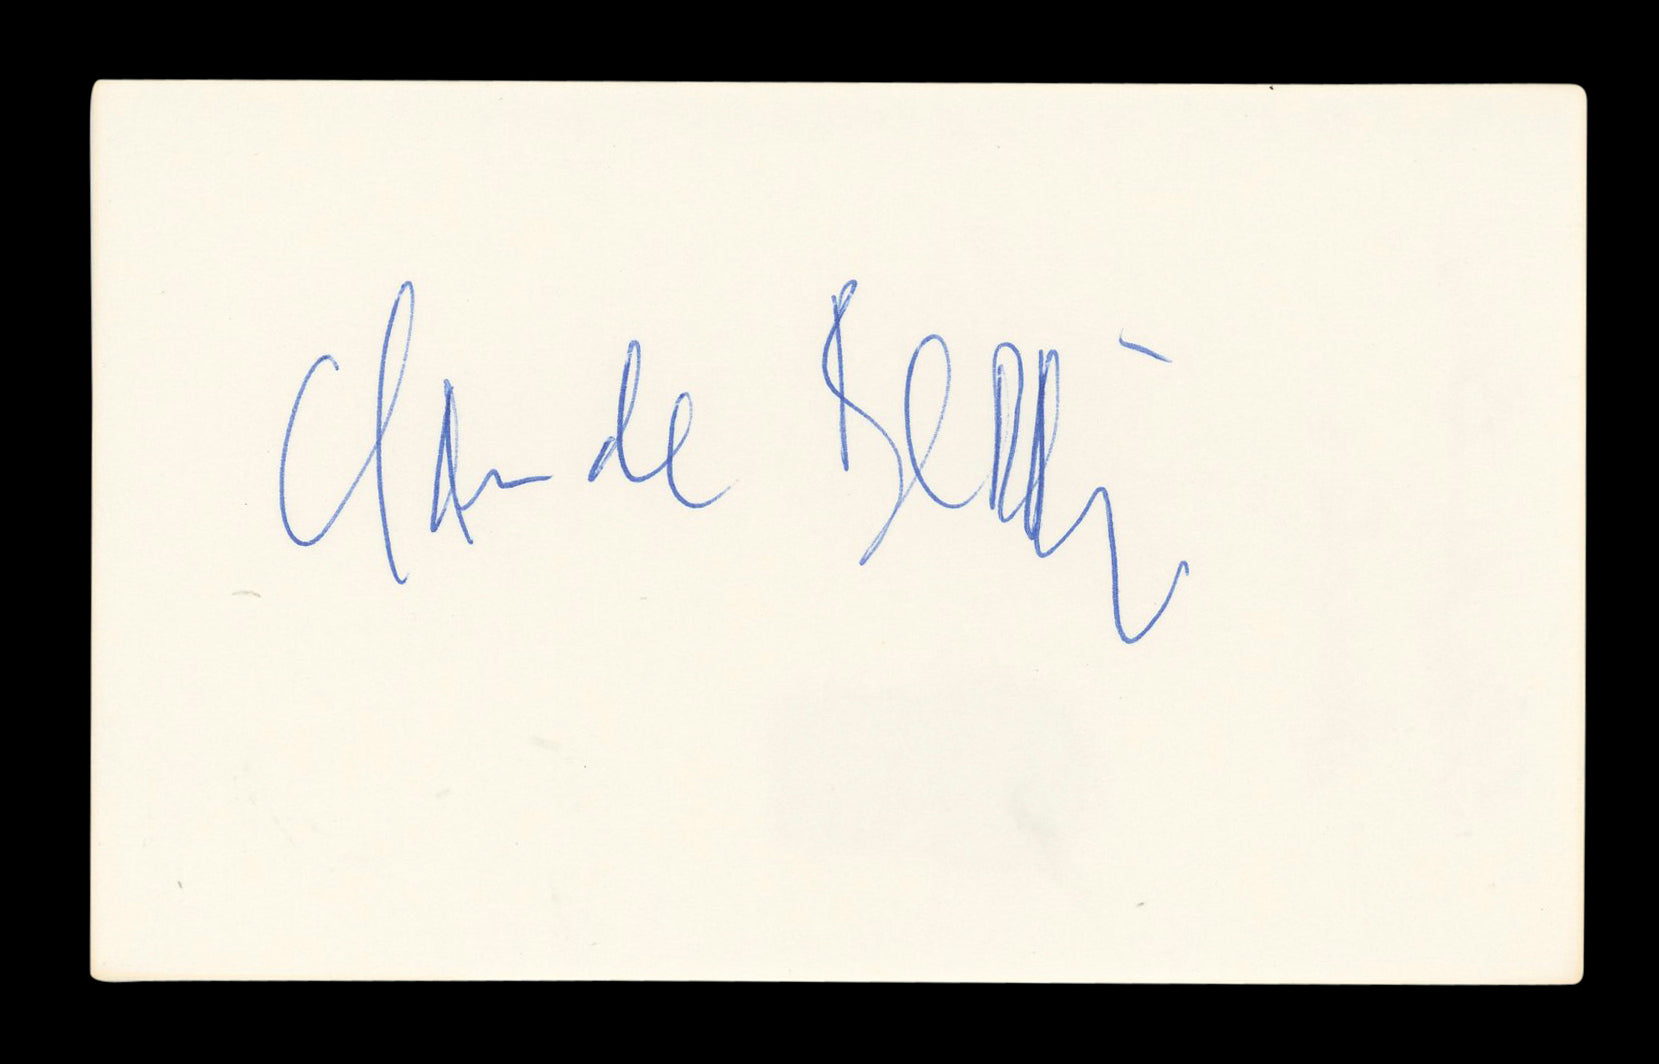 Claude Berri